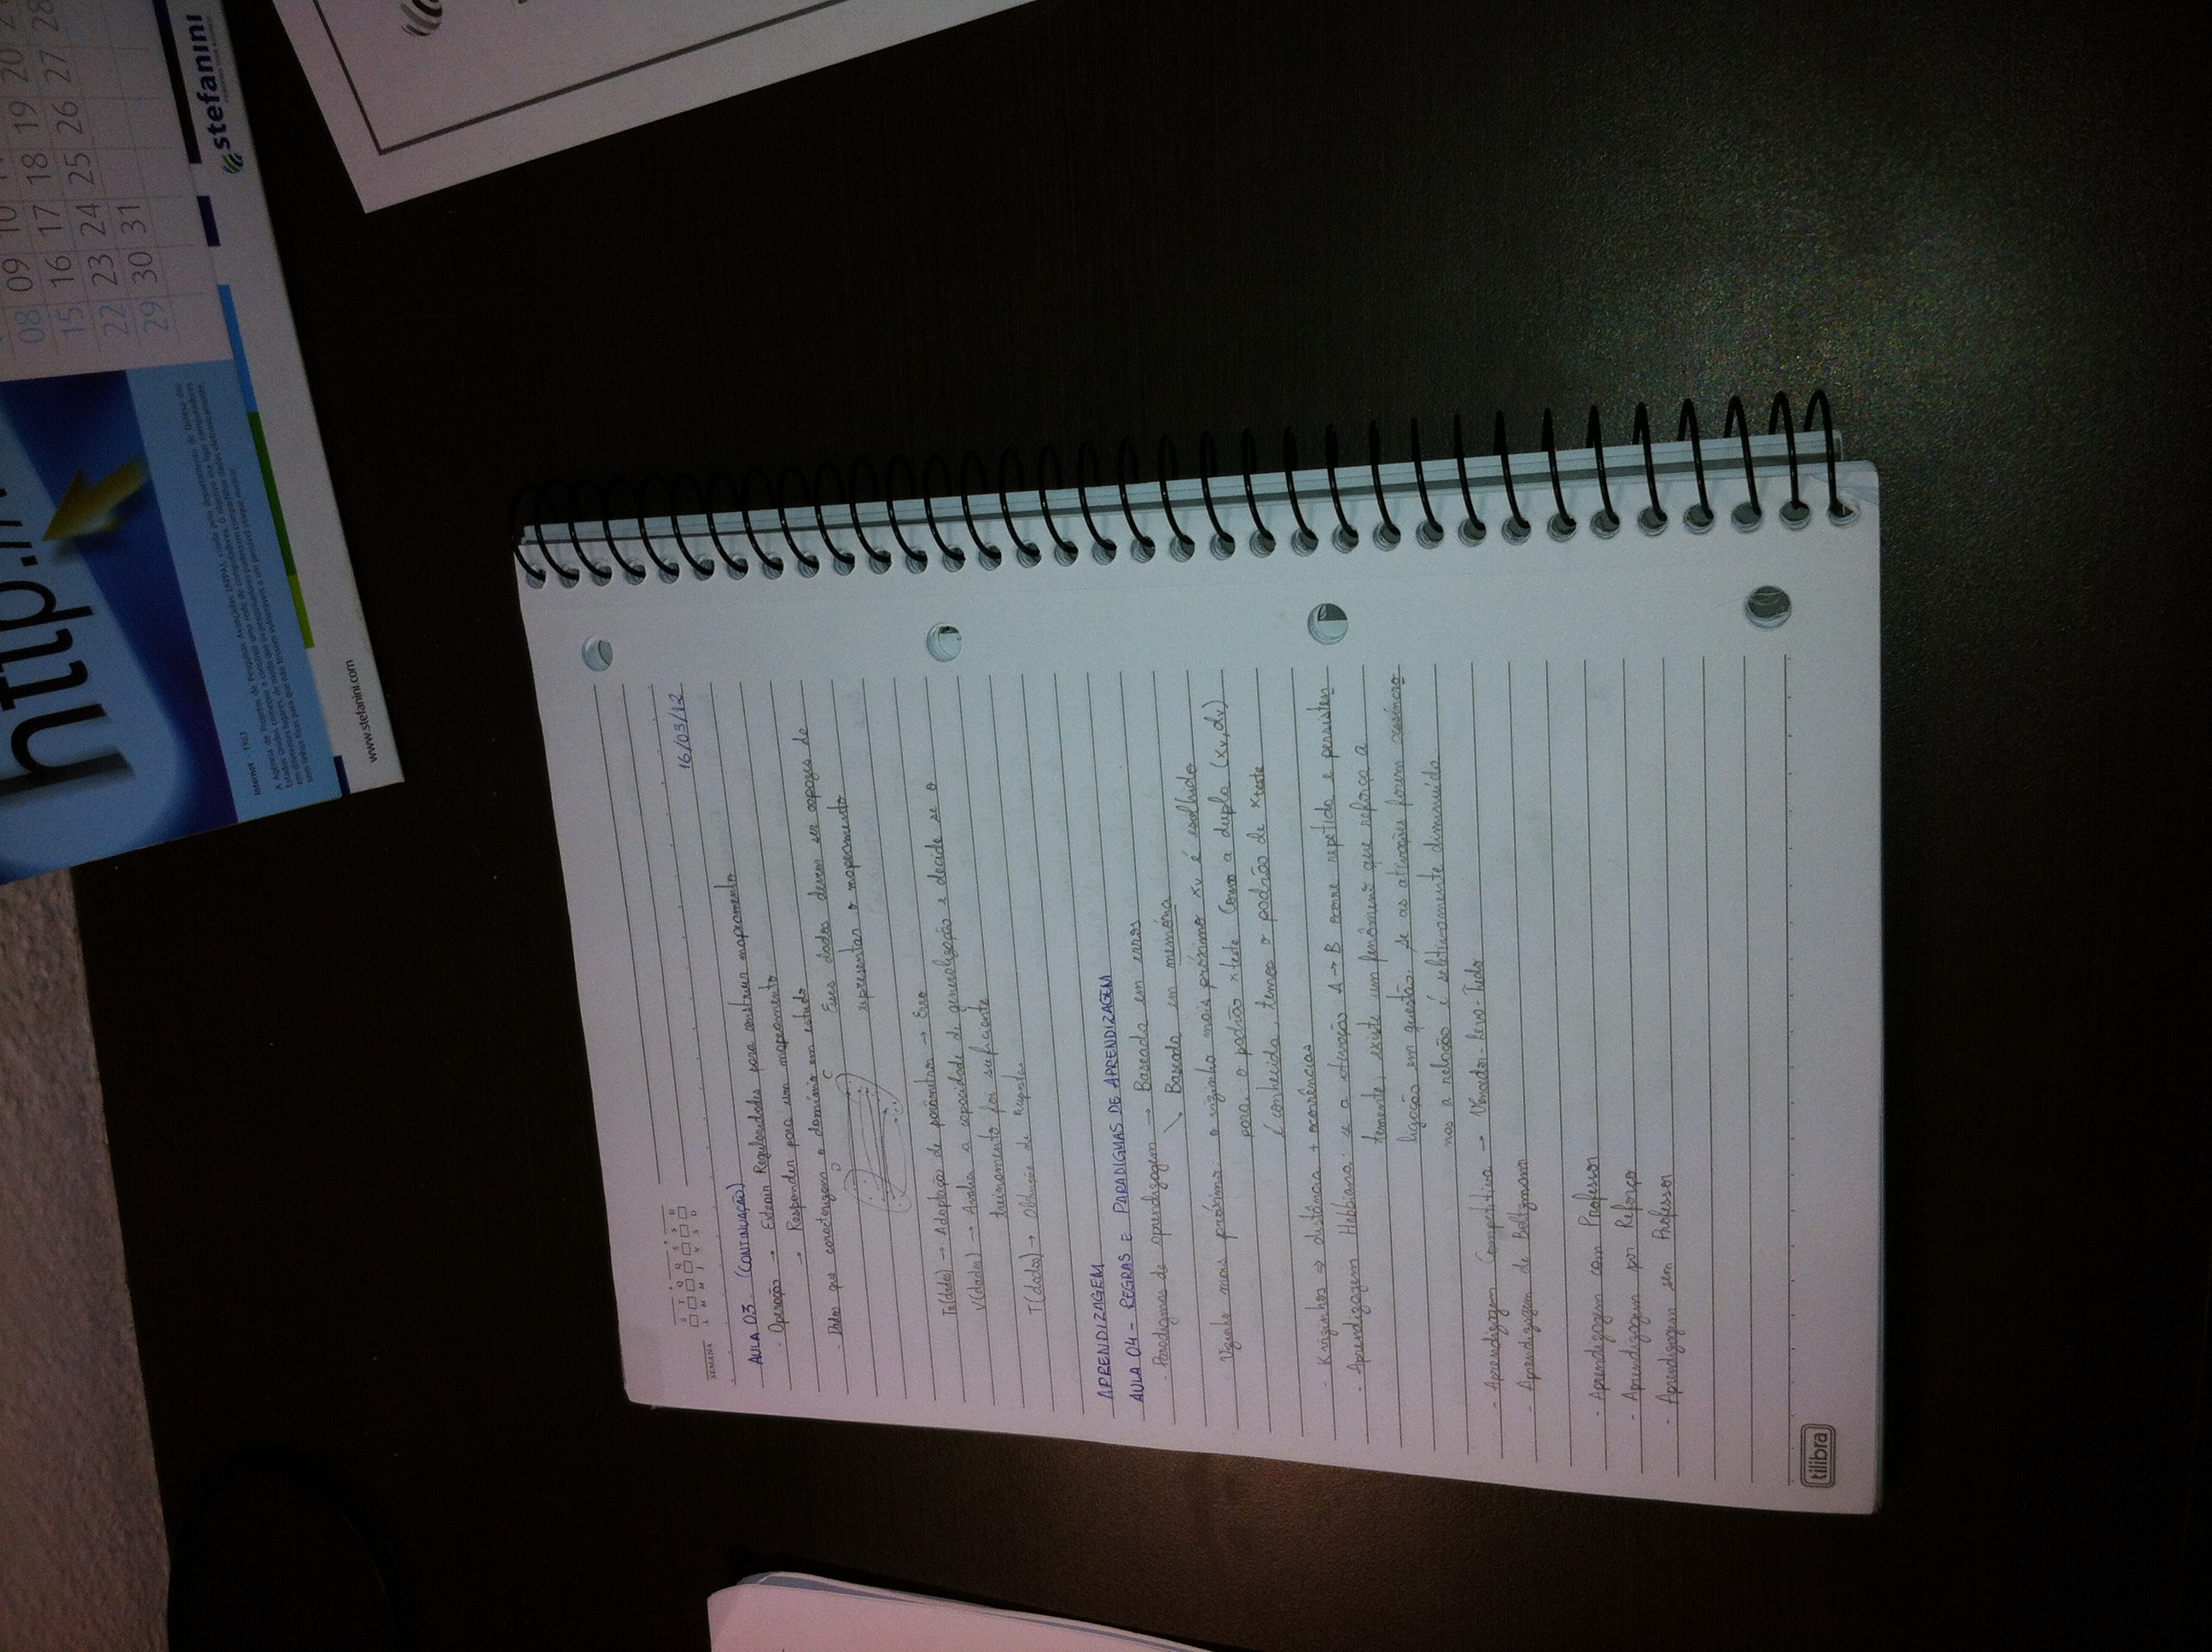 http://
08 09 10
15 16 17 18 19 20 21
22 23 24 25 26 27 28
29 30 31
Internet - 1963
A Agência de Projetos de Pesquisas Avançadas (ARPA), criada pelo departamento de Defesa dos
Estados Unidos começou a construir uma rede de computadores. O objetivo era ligar computadores
em diferentes lugares, de modo que os pesquisadores pudessem compartilhar dados eletronicamente,
sem linhas fixas para que não fossem vulneráveis a um possível ataque nuclear.
stefanini
www.stefanini.com
S T Q Q S S D
L M M J V S D
SEMANA
16/03/12
AULA 03 - (CONTINUAÇÃO)
- Operação → Extrair Regularidades para construir mapeamento
→ Responder para um mapeamento
- Dados que caracterizam o domínio em estudo
D C
Esses dados devem ser capazes de
representar o mapeamento
TR(dados) → Adaptação de parâmetros → Erro
V(dados) → Avalia a capacidade de generalização e decide se o
treinamento foi suficiente
T(dados) → Obtenção de Respostas
APRENDIZAGEM
AULA 04 - REGRAS E PARADIGMAS DE APRENDIZAGEM
- Paradigmas de aprendizagem → Baseada em erros
↘ Baseada em memória
Vizinho mais próximo: o vizinho mais próximo xv é escolhido
para o padrão xteste Como a dupla (xv, dv)
é conhecida, temos o padrão de xteste
- K vizinhos ⇒ distância + ocorrências
- Aprendizagem Hebbiana: se a ativação A → B ocorre repetida e persisten
temente, existe um fenômeno que reforça a
ligação em questão. Se as ativações forem assíncro
nas a relação é seletivamente diminuída
- Aprendizagem Competitiva → Vencedor-Leva-Tudo
- Aprendizagem de Boltzmann
- Aprendizagem com Professor
- Aprendizagem por Reforço
- Aprendizagem sem Professor
tilibra